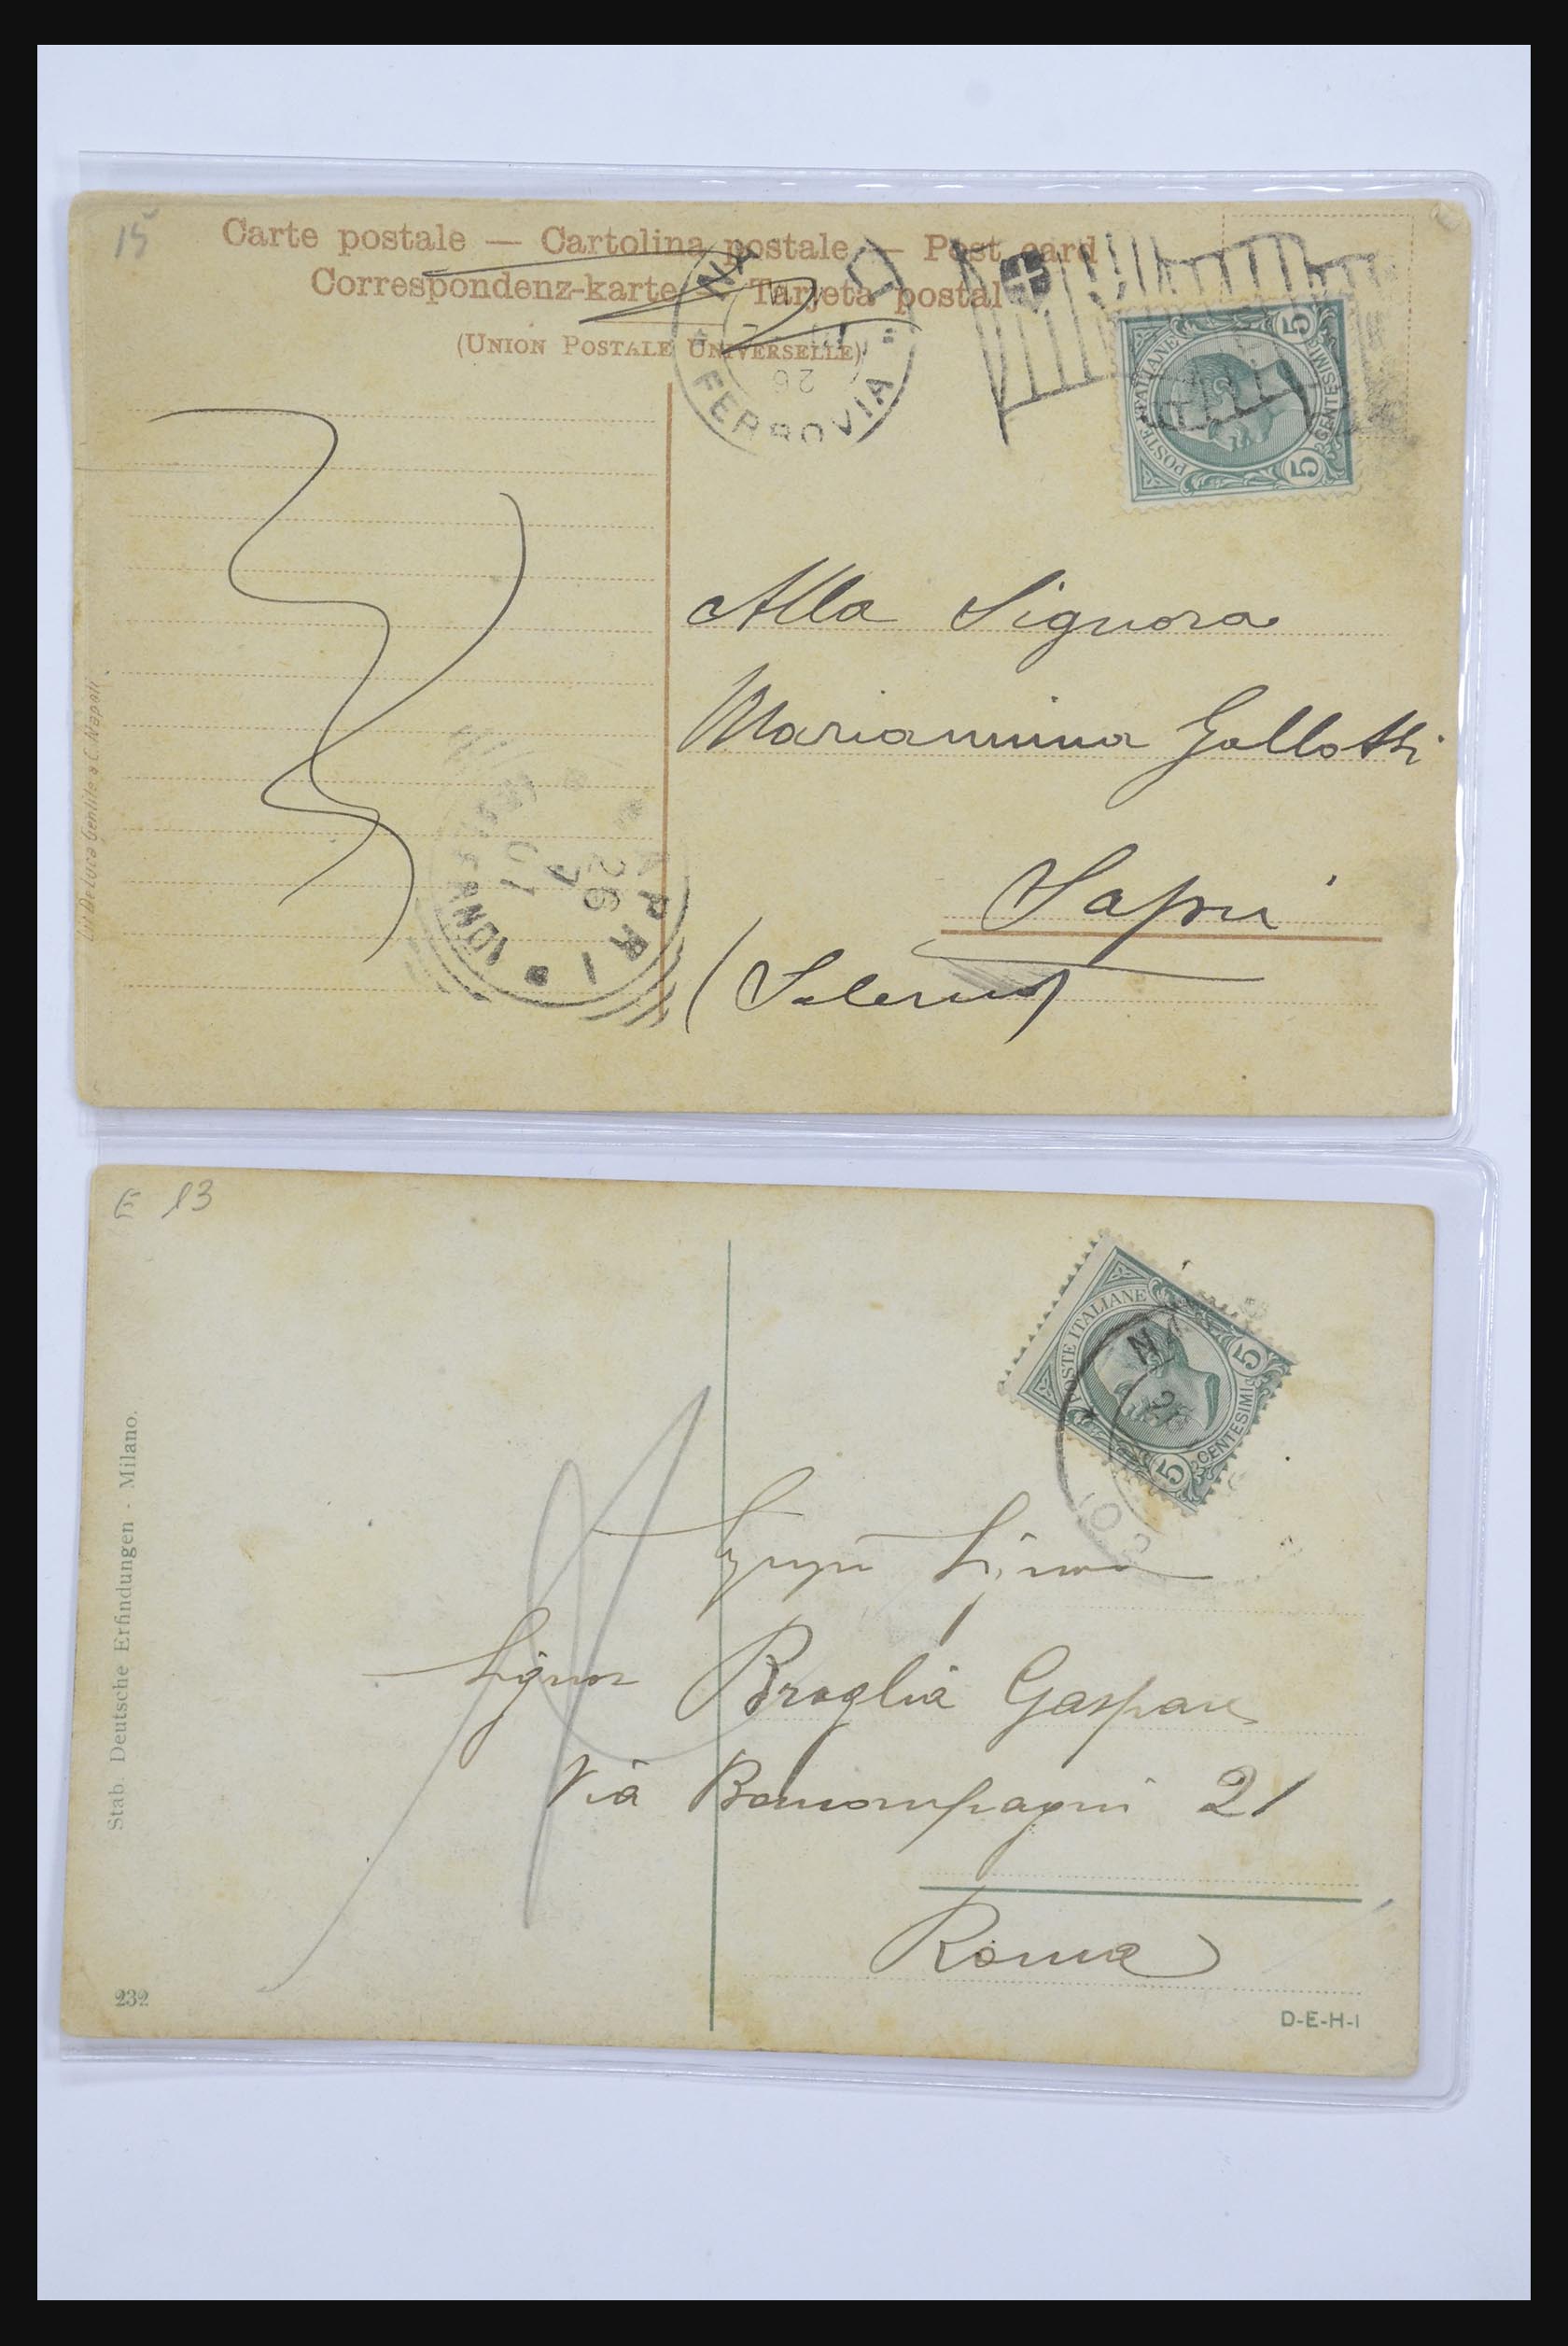 15
Carte postale — Cartolina postale — Post card
Correspondenz-karte — Tarjeta postal
(UNION POSTALE UNIVERSELLE)
NA
FERROVIA
26
POSTE ITALIANE
5 CENTESIMI 5
Alla Signora
Mariannina Gallotti
Sapri
(Salerno)
26
De Luca Gentile & C. Napoli
13
POSTE ITALIANE
5 CENTESIMI 5
NA
Signor Broglia Gaspare
Via Boncompagni 21
Roma
Stab. Deutsche Erfindungen - Milano.
232
D-E-H-I